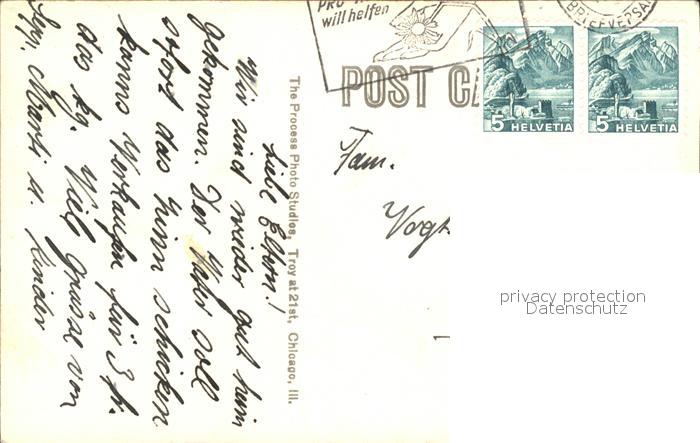 PRO
will helfen
BRIEFVERSA
POST CA
5 HELVETIA
5 HELVETIA
Fam.
Vogt
privacy protection
Datenschutz
The Process Photo Studios, Troy at 21st, Chicago, Ill.
Liebe Eltern!
Wir sind wieder gut heim
gekommen. Der Hefer soll
sofort das Zinn schicken
kanns Verkaufen für 3 fr.
das kg. Viele Grüsse von
Sepp, Marti u. Kinder